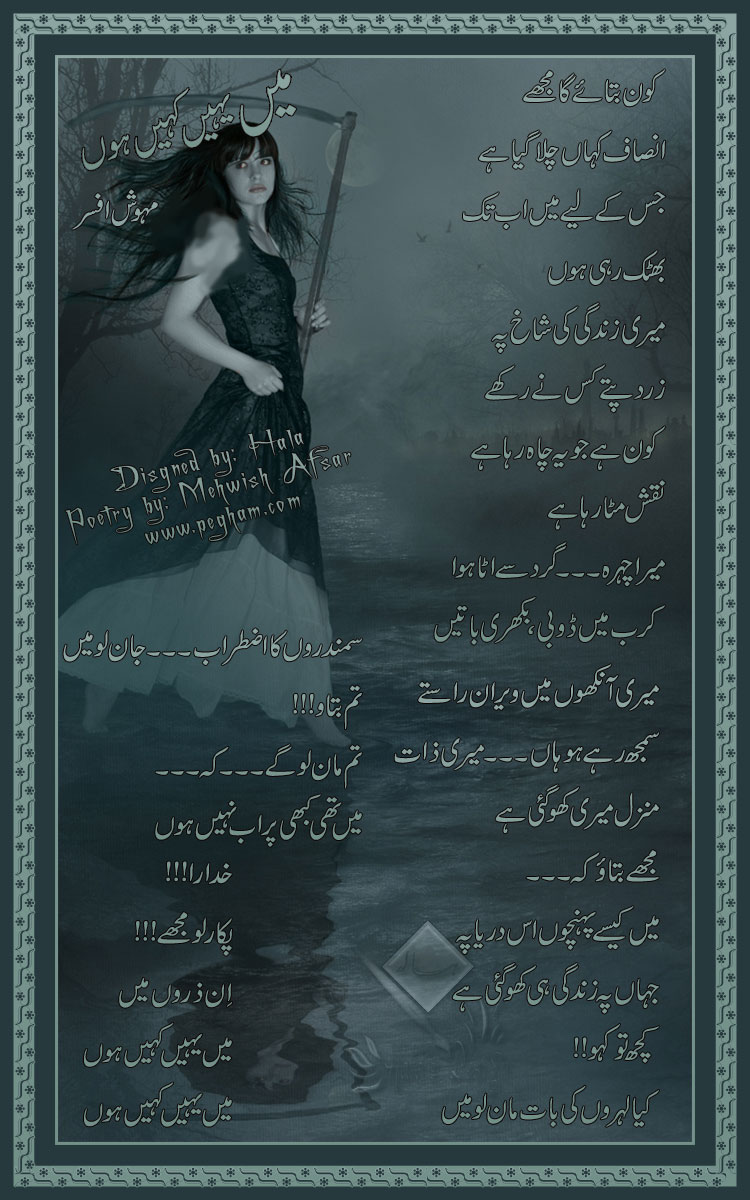 میں یہیں کہیں ہوں
مہوش افسر
کون بتائے گا مجھے
انصاف کہاں چلا گیا ہے
جس کے لیے میں اب تک
بھٹک رہی ہوں
میری زندگی کی شاخ پہ
زرد پتے کس نے رکھے
کون ہے جو یہ چاہ رہا ہے
نقش مٹا رہا ہے
میرا چہرہ ۔۔۔ گرد سے اٹا ہوا
کرب میں ڈوبی، بکھری باتیں
میری آنکھوں میں ویران راستے
سمجھ رہے ہو ہاں ۔۔۔ میری ذات
منزل میری کھو گئی ہے
مجھے بتاؤ کہ ۔۔۔
میں کیسے پہنچوں اس دریا پہ
جہاں پہ زندگی ہی کھو گئی ہے
کچھ تو کہو!!
کیا لہروں کی بات مان لو میں
سمندروں کا اضطراب ۔۔۔ جان لو میں
تم بتاو!!!
تم مان لو گے ۔۔۔ کہ ۔۔۔
میں تھی کبھی پر اب نہیں ہوں
خدارا!!!
پکار لو مجھے!!!
اِن ذروں میں
میں یہیں کہیں ہوں
میں یہیں کہیں ہوں
Disgned by: Hala
Poetry by: Mehwish Afsar
www.pegham.com